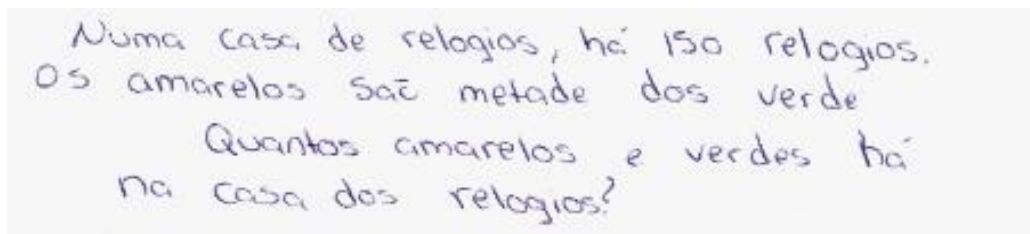 Numa casa de relogios, há 150 relogios.
Os amarelos saō metade dos verde
Quantos amarelos e verdes há
na casa dos relogios?